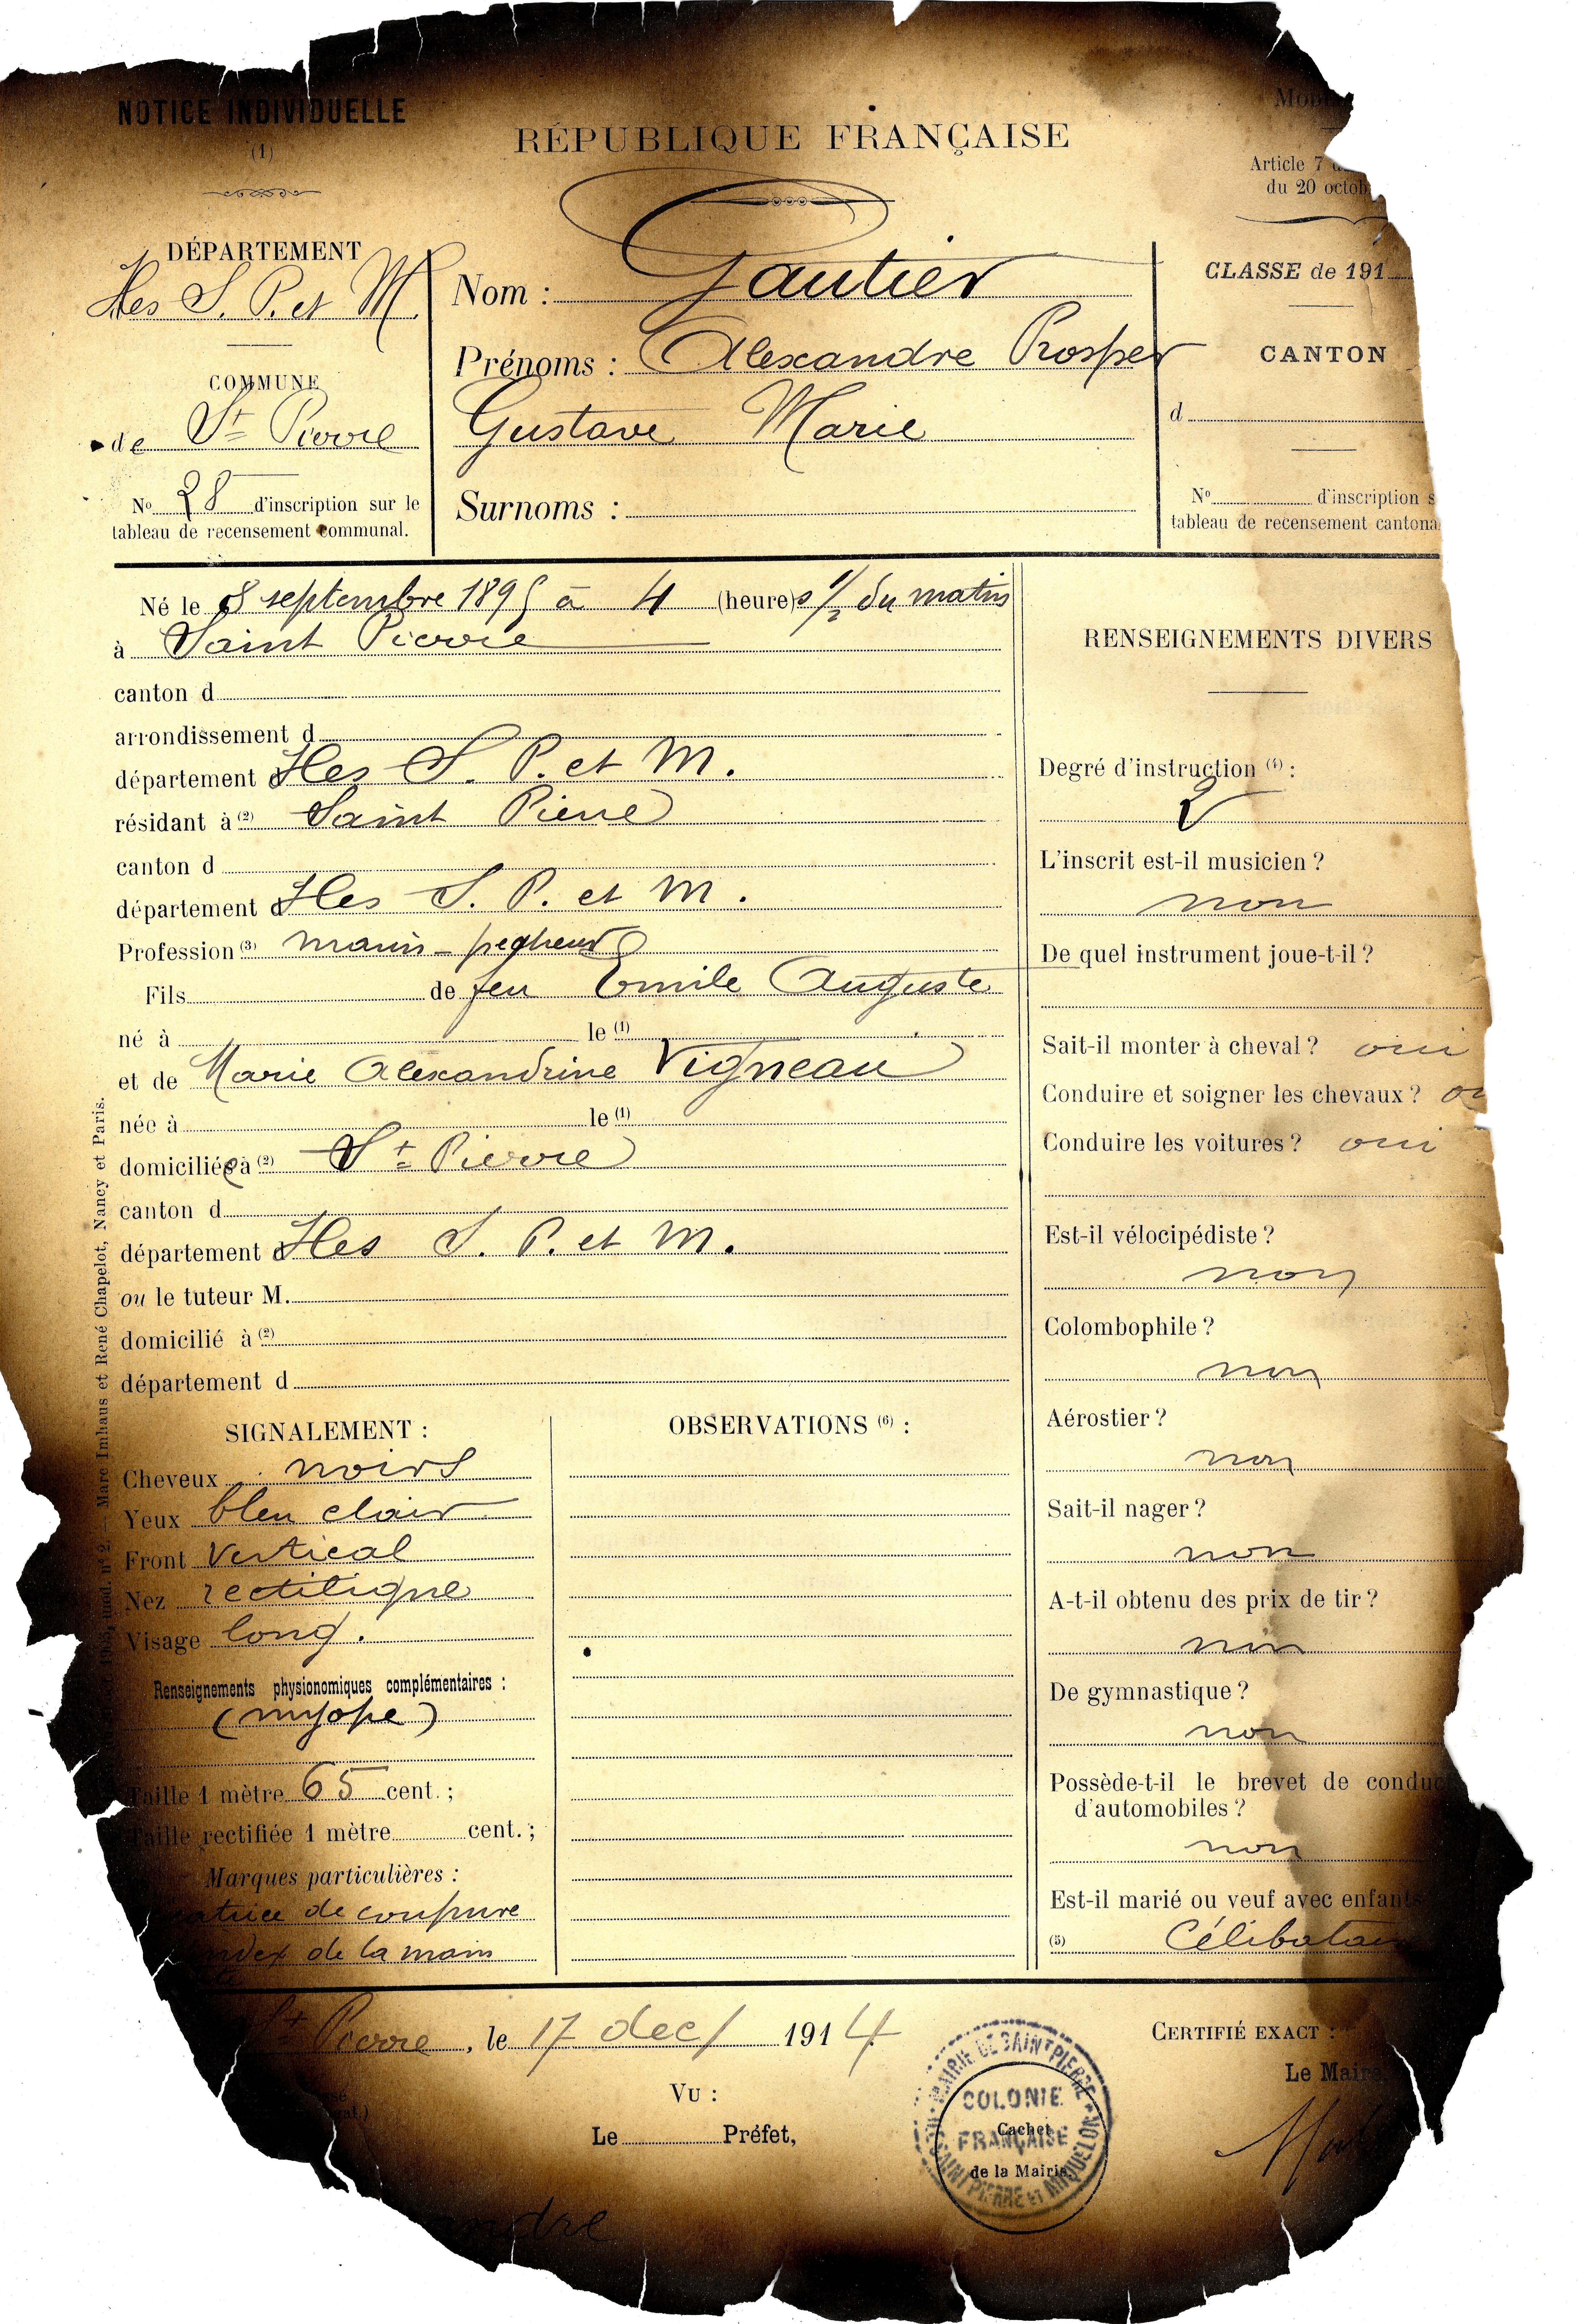 NOTICE INDIVIDUELLE
(1)
RÉPUBLIQUE FRANÇAISE
Article 7
du 20 octob
DÉPARTEMENT
Iles S. P. et M.
COMMUNE
de St Pierre
No 28 d'inscription sur le
tableau de recensement communal.
Nom : Gautier
Prénoms : Alexandre Prosper
Gustave Marie
Surnoms :
CLASSE de 191
CANTON
d
No d'inscription s
tableau de recensement cantona
Né le 8 septembre 1895 à 4 (heure)s 1/2 du matin
à Saint Pierre
canton d
arrondissement d
département d Iles S. P. et M.
résidant à (2) Saint Pierre
canton d
département d Iles S. P. et M.
Profession (3) marin-pecheur
Fils de feu Emile Auguste
né à le (1)
et de Marie Alexandrine Vigneau
née à le (1)
domiciliée à (2) St Pierre
canton d
département d Iles S. P. et M.
ou le tuteur M.
domicilié à (2)
département d
SIGNALEMENT :
Cheveux noirs
Yeux bleu clair
Front Vertical
Nez rectiligne
Visage long.
Renseignements physionomiques complémentaires :
(myope)
Taille 1 mètre 65 cent. ;
Taille rectifiée 1 mètre cent. ;
Marques particulières :
de coupure
index de la main
OBSERVATIONS (6) :
RENSEIGNEMENTS DIVERS
Degré d'instruction (4) :
L'inscrit est-il musicien ?
non
De quel instrument joue-t-il ?
Sait-il monter à cheval ? oui
Conduire et soigner les chevaux ?
Conduire les voitures ? oui
Est-il vélocipédiste ?
non
Colombophile ?
non
Aérostier ?
non
Sait-il nager ?
non
A-t-il obtenu des prix de tir ?
non
De gymnastique ?
non
Possède-t-il le brevet de conduc
d'automobiles ?
non
Est-il marié ou veuf avec enfants
(5) Célibatai
St Pierre, le 17 dec/ 1914
CERTIFIÉ EXACT :
Le Maire,
VU :
Le Préfet,
MAIRIE DE SAINT PIERRE
COLONIE
FRANÇAISE
SAINT PIERRE ET MIQUELON
Cachet
de la Mairie.
andre
Marc Imhaus et René Chapelot, Nancy et Paris.